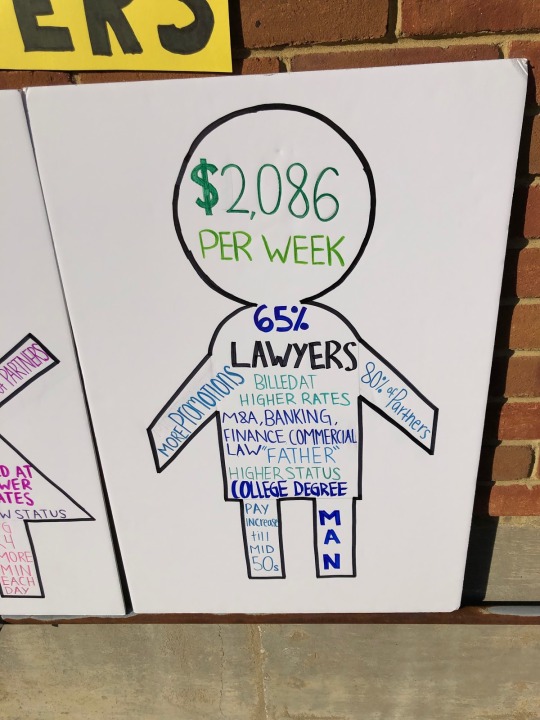 ERS
$2,086
PER WEEK
65%
LAWYERS
BILLED AT
HIGHER RATES
M&A, BANKING,
FINANCE COMMERCIAL
LAW "FATHER"
HIGHER STATUS
COLLEGE DEGREE
MORE PROMOTIONS
80% of Partners
PAY
increase
till
MID
50s
MAN
PARTNERS
D AT
WER
ATES
W STATUS
MORE
MIN
EACH
DAY